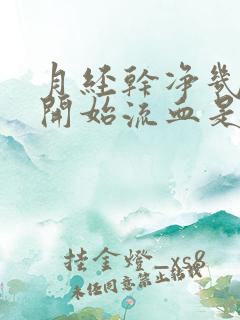 月經幹凈幾
開始流血是
挂金燈_xs8
未經同意禁止轉載